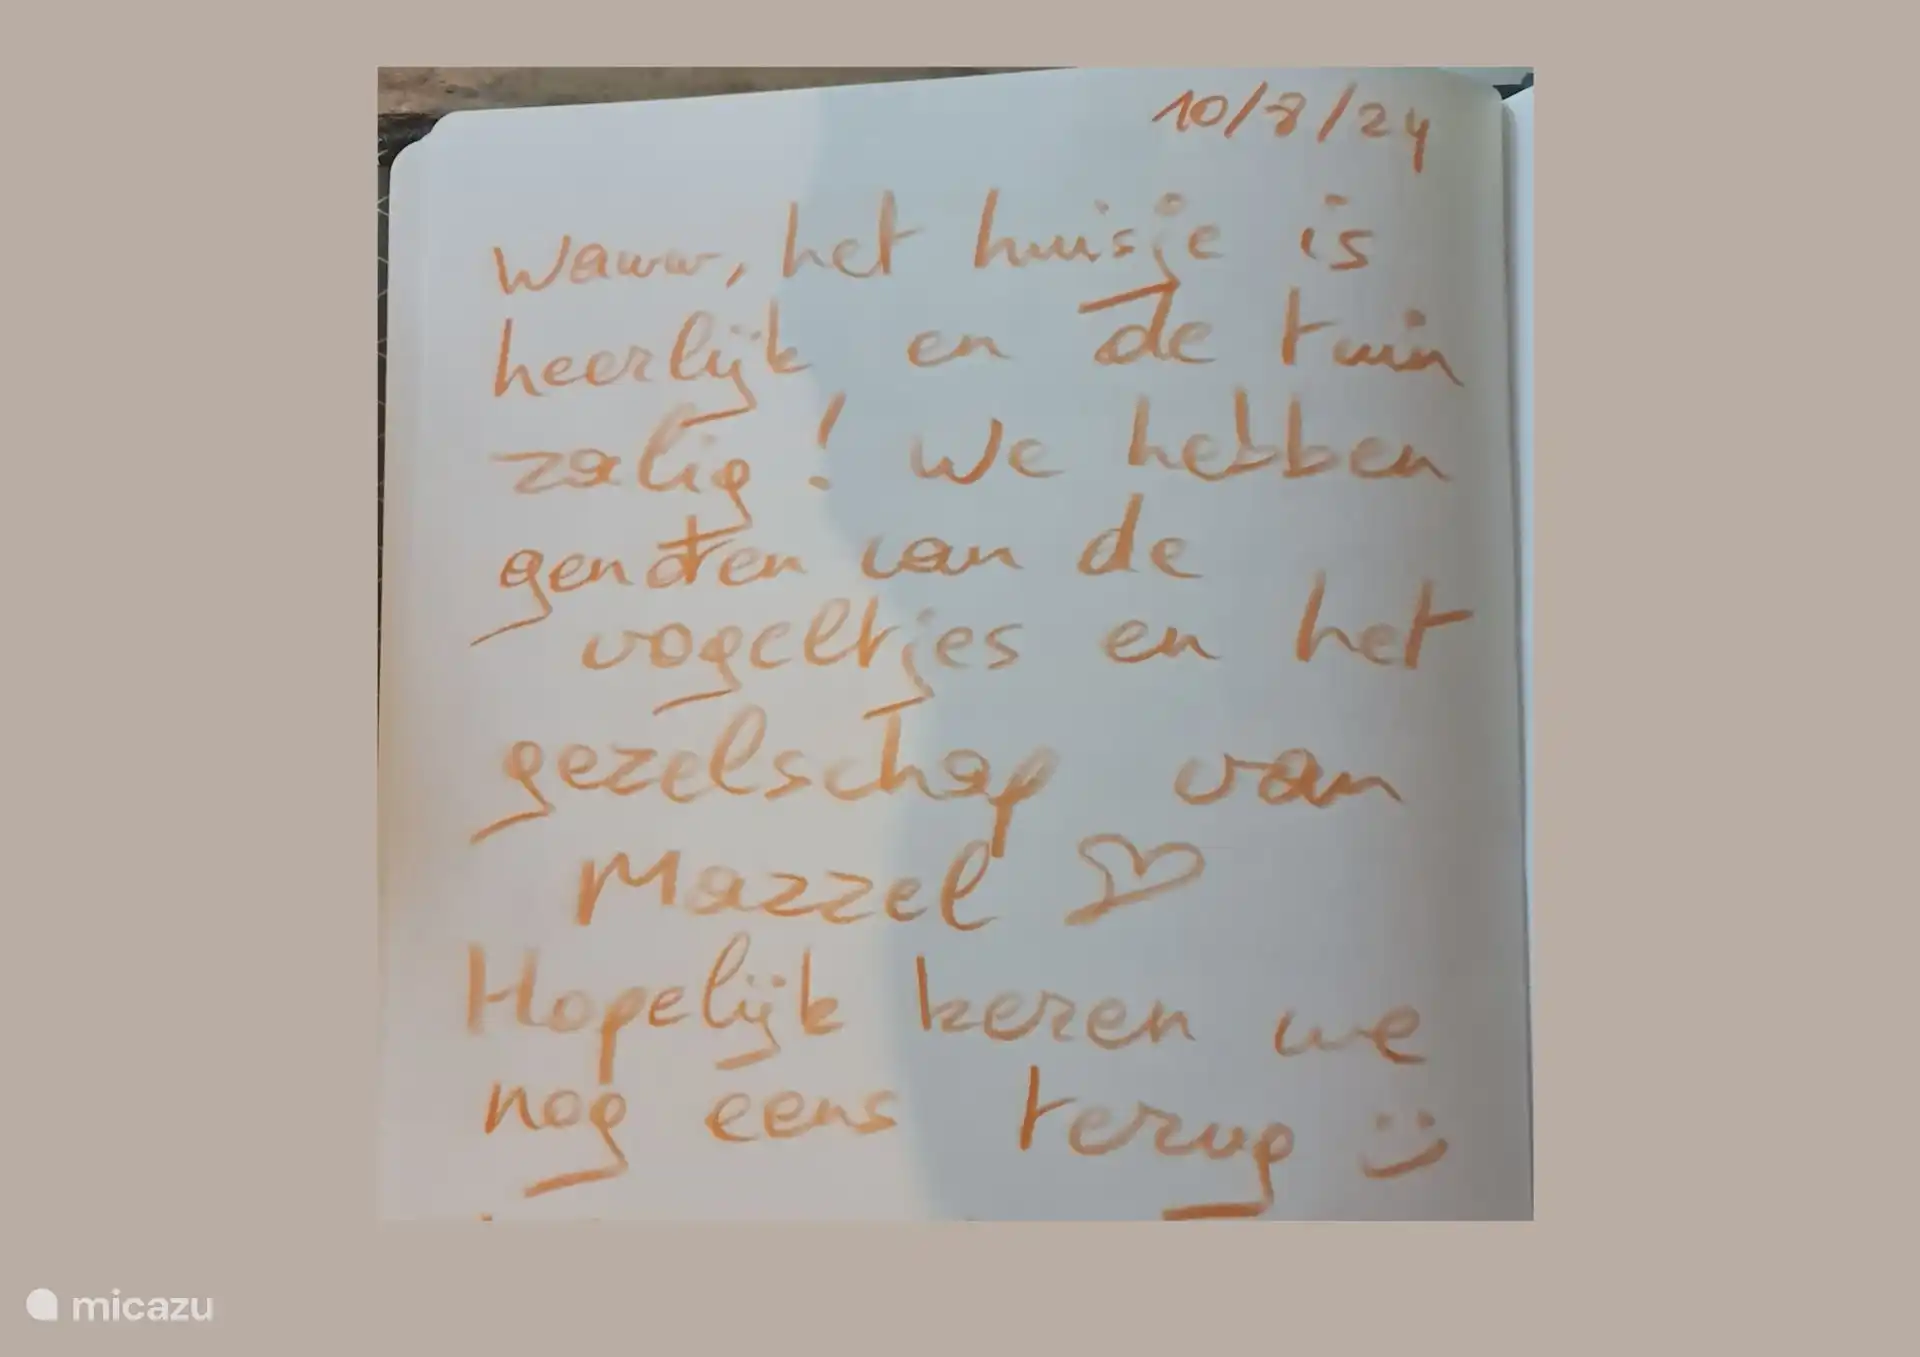 10/8/24
Waww, het huisje is
heerlijk en de tuin
zalig! We hebben
genoten van de
vogeltjes en het
gezelschap van
Mazzel ♡
Hopelijk keren we
nog eens terug :)
micazu